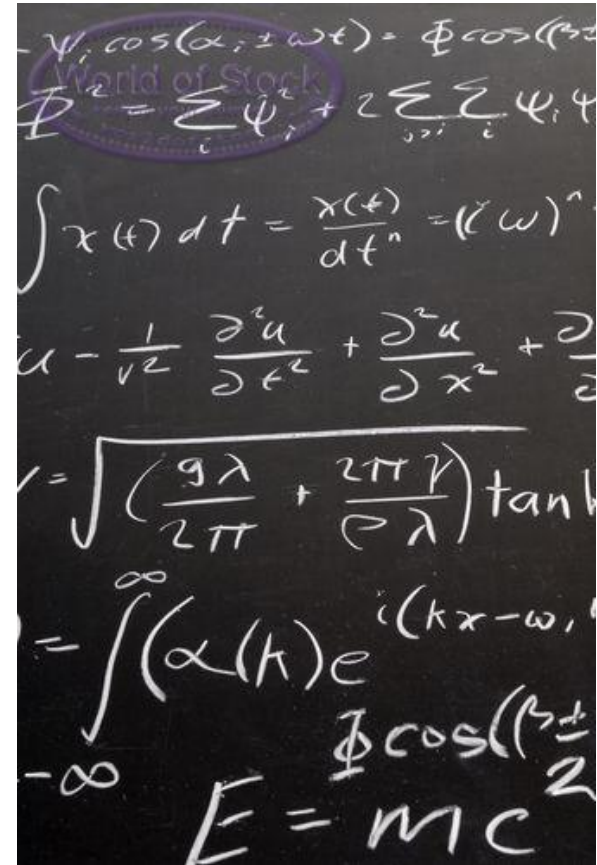 - ψᵢ cos(αᵢ ± ωt) = Φ cos(β ±
World of Stock
Φ² = Σᵢ ψᵢ² + 2 Σ_{j>i} Σᵢ ψᵢ ψ
∫ x(t) dt = x(t)/dtⁿ = (iω)ⁿ
u - 1/v² ∂²u/∂t² + ∂²u/∂x² + ∂
= √(gλ/2π + 2πγ/ρλ) tanh
= ∫_{-∞}^{∞} (α(k)e^{i(kx-ω,
Φ cos((β ±
E = mc²